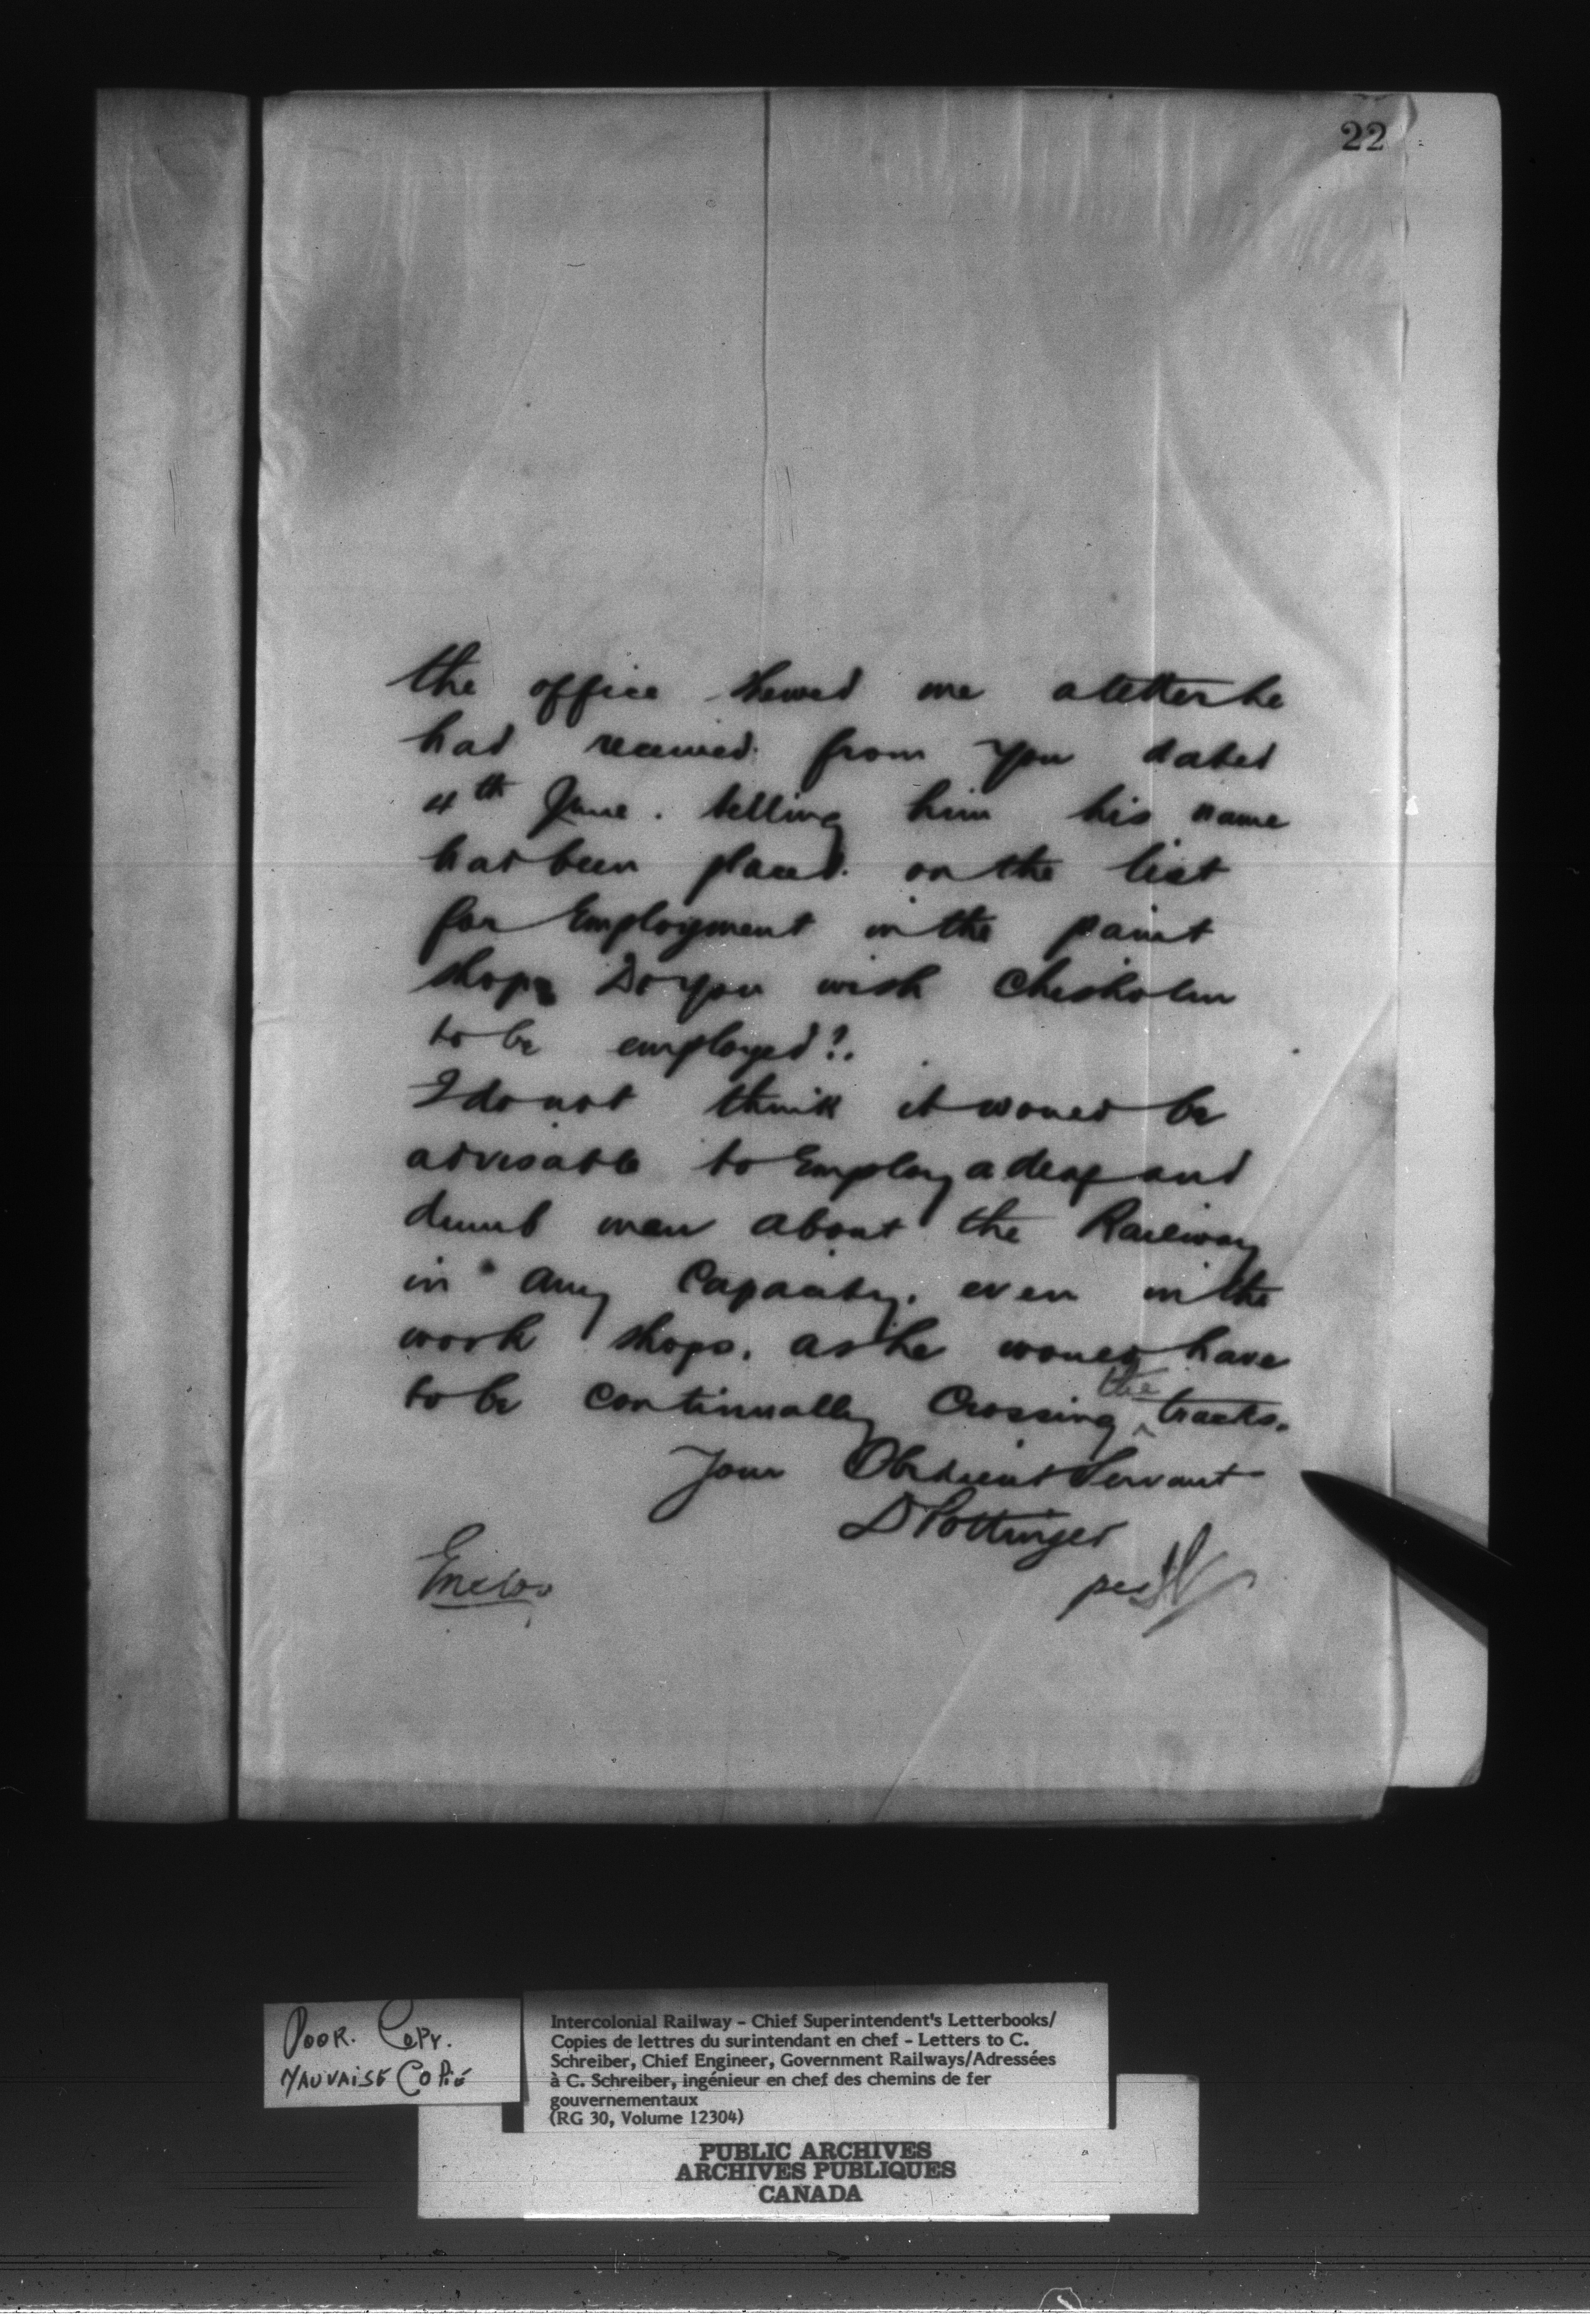 22
the office shewed me a letter he
had received from you dated
4th June. telling him his name
had been placed on the list
for Employment in the paint
shop. Do you wish Chisholm
to be employed?.
I do not think it would be
advisable to Employ a deaf and
dumb man about the Railway
in any Capacity. even in the
work shops. as he would have
to be Continually Crossing the tracks.
Your Obedient Servant
D Pottinger
per
Enclo.
POOR. COPY.
MAUVAISE COPIE
Intercolonial Railway – Chief Superintendent's Letterbooks/
Copies de lettres du surintendant en chef – Letters to C.
Schreiber, Chief Engineer, Government Railways/Adressées
à C. Schreiber, ingénieur en chef des chemins de fer
gouvernementaux
(RG 30, Volume 12304)
PUBLIC ARCHIVES
ARCHIVES PUBLIQUES
CANADA